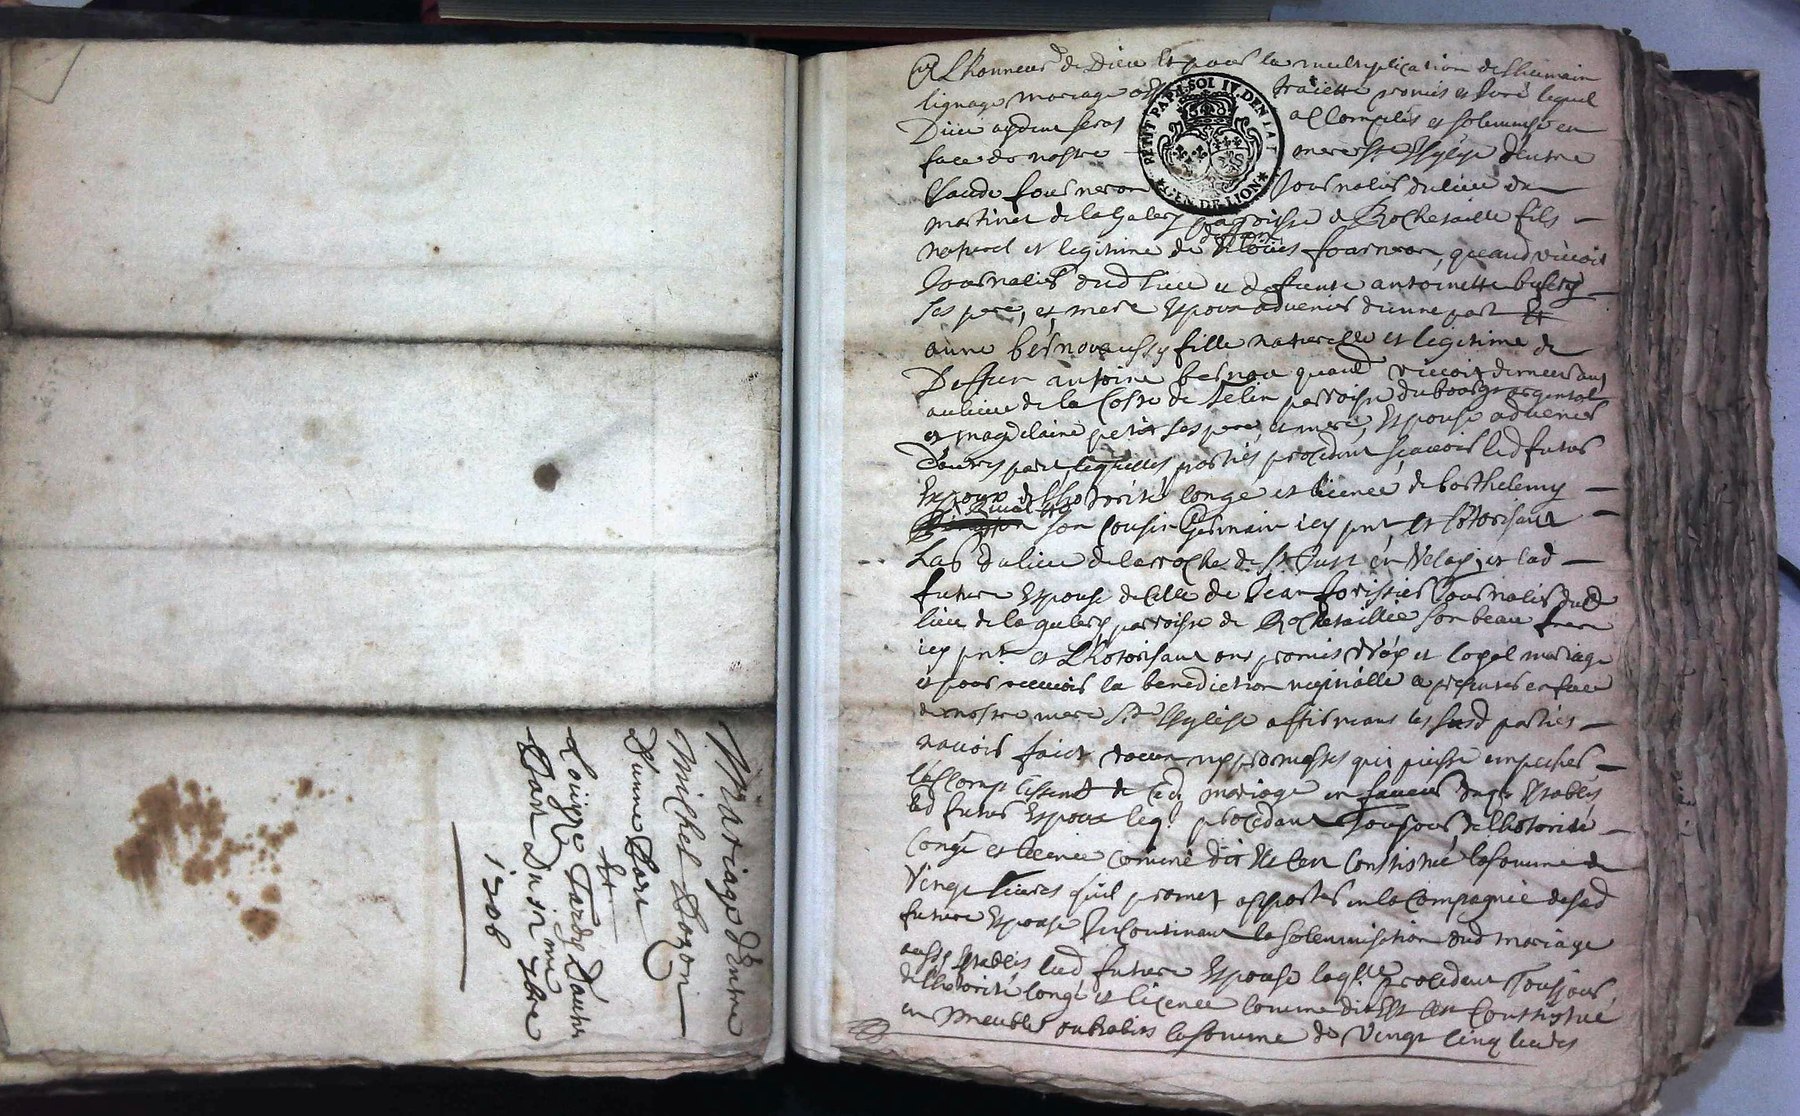 Mariage d'Entre
Michel
D'unne Part
Et
Louize Tardy D'autre
Part Du 9bre
1706
A Lhonneur de Dieu Et pour la multiplication de lhumain
lignage mariage traicté promis et lequel
Dieu aydant seras accomplis et solemnisé en
face de nostre mere ste Esglise dentre
Claude fourneron Journalier du lieu du
martinet de la paroisse de Rochetaillé fils
naturel et legitime de deffunt Louis fourneron, quand vivoit
Journalier dud lieu et deffunte antoinette
ses pere, et mere Espoux advenir dunne part Et
anne fille naturelle et legitime de
Deffun antoine quand vivoit demeurant
au lieu de la Coste de parroisse du bourg argental
et magdelaine petit ses pere et mere, Espouse advenir
Dautre part, lesquelles parties procedant scavoir led futur
Espoux de Lhotorité conge et licence de barthelemy
son Cousin Germain icy pnt et Lotorisant
du lieu de la roche de St Just en Velay, et lad
future Espouse de celle de Jean forissier Journalier dud
lieu de la parroisse de Rochetaillié son beau frere
icy pnt et Lhotorisant ont promis vray et loyal mariage
et pour recevoir la benediction nuptialle en face
de nostre mere Ste Esglise affirmant les susd parties
navoir faict promesses qui puisse empecher
de ced. mariage en faveur duq. Establis
led futur Espoux leql. procedant Toujour de lhotorité
Congé et licence comme dit Est cest Constitué la somme de
Vingt livres quil promet apporter en la Compagnie de sad
future Espouse Incontinant la solemnisation dud mariage
aussy Establis lad future Espouse laqlle procedant Toujour
de lhotorité congé et licence comme dit Est cest Constitué
en meubles la somme de Vingt cinq livres
PETIT PAP. 1. SOL IV. DEN. LA F.
GEN. DE LION